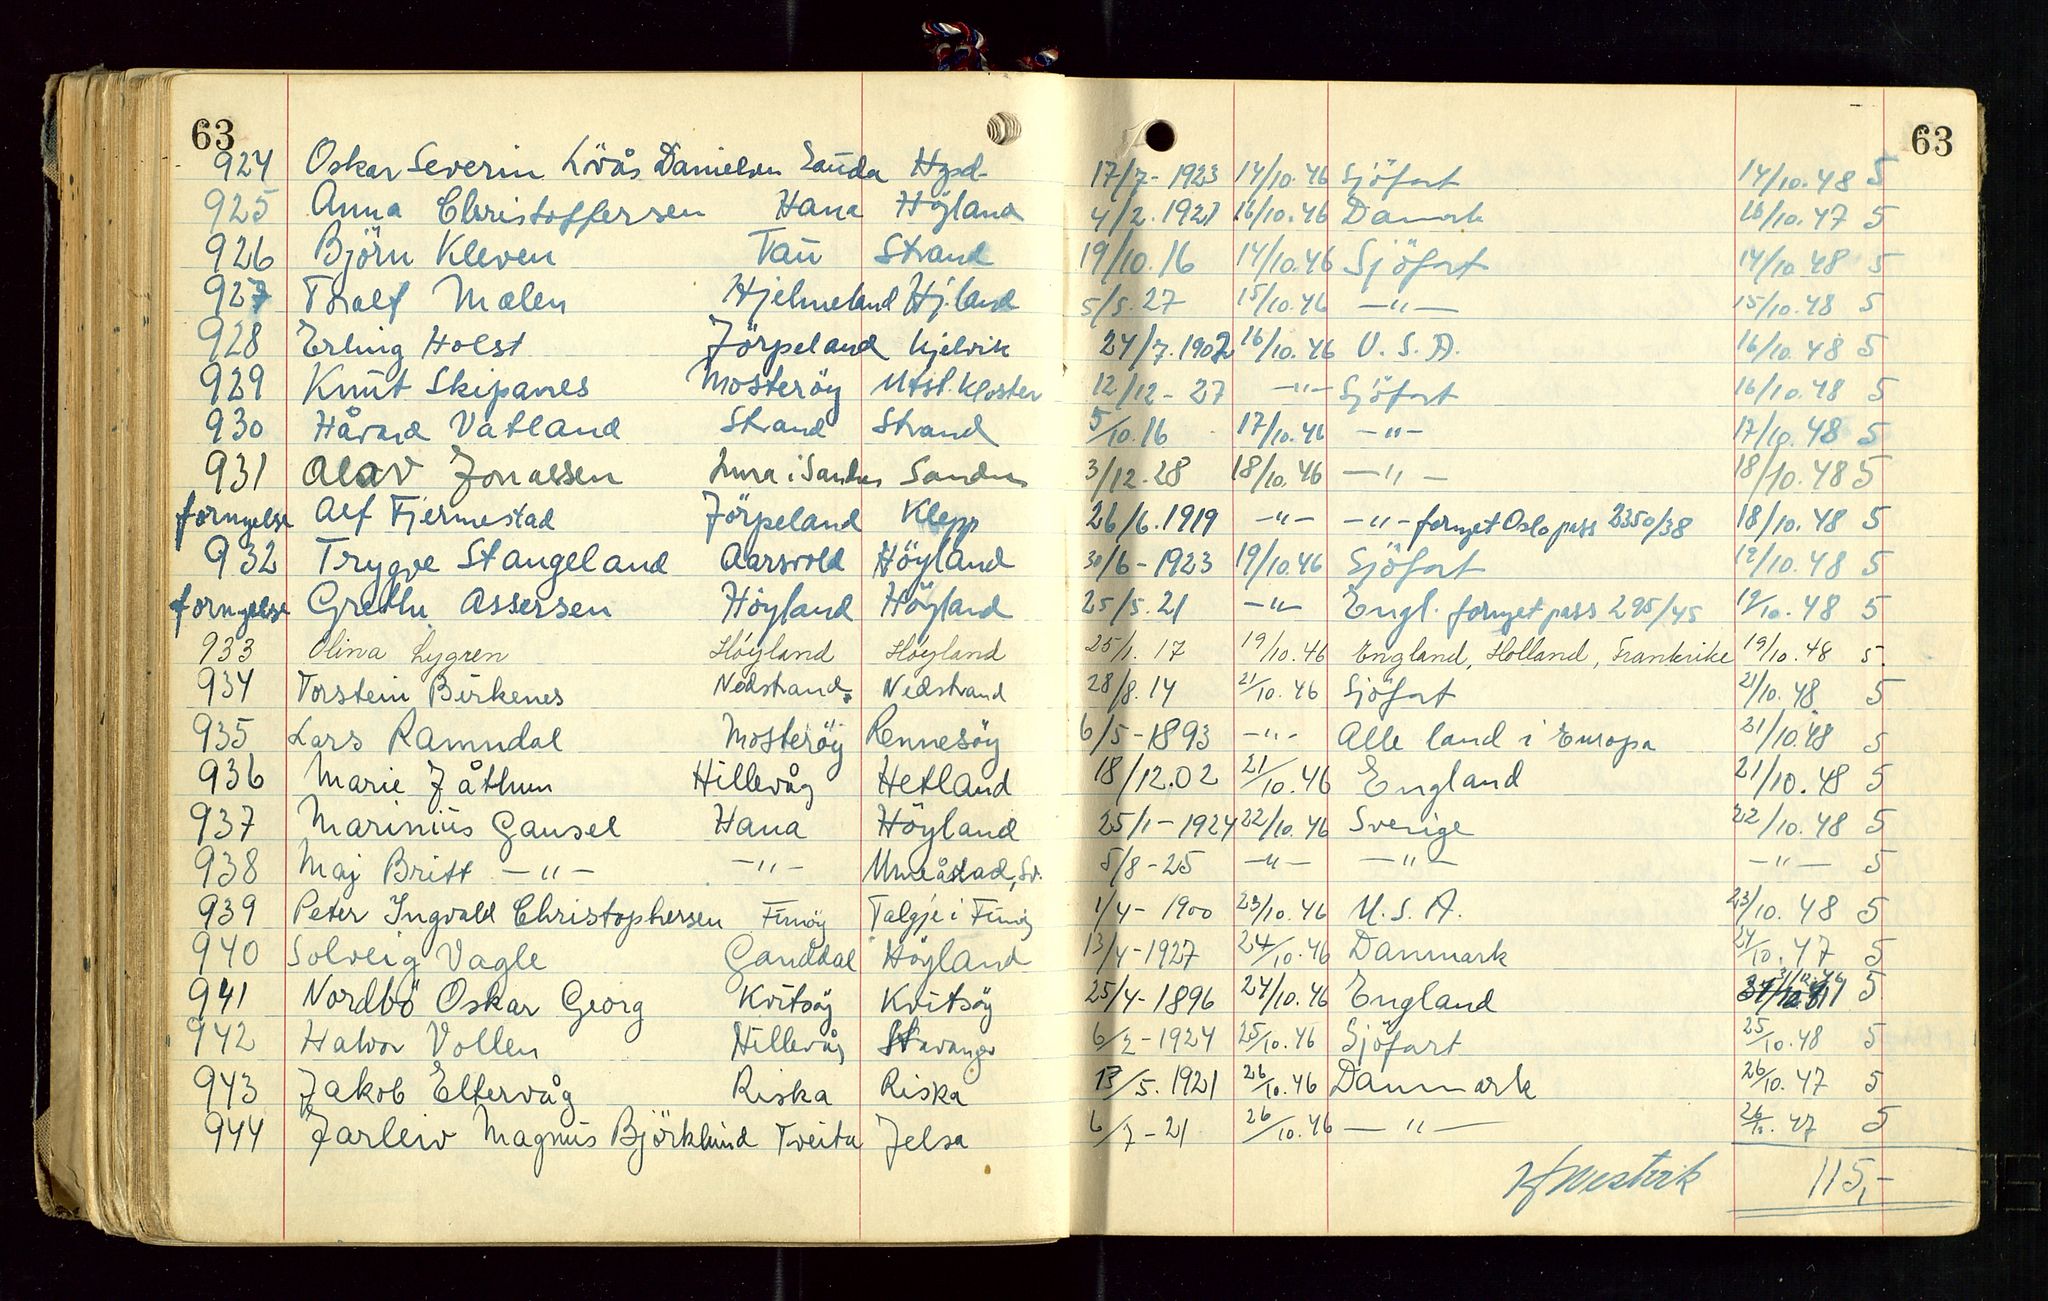 63 63
924 Oskar Severin Lövås Danielsen Sauda Hgsd. 17/7-1923 14/10.46 Sjöfart 14/10.48 5
925 Anna Christoffersen Hana Höyland 4/2.1921 16/10.46 Danmark 16/10.47 5
926 Björn Kleven Tau Strand 19/10.16 14/10.46 Sjöfart 14/10.48 5
927 Tralf Mælen Hjelmeland Hj.land 5/5.27 15/10.46 —"— 15/10.48 5
928 Erling Holst Jörpeland Kjelvik 24/7.1902 16/10.46 U.S.A. 16/10.48 5
929 Knut Skipanes Mosteröy Utst. Kloster 12/12-27 —"— Sjöfart 16/10.48 5
930 Håvard Vatland Strand Strand 5/10.16 17/10.46 —"— 17/10.48 5
931 Olav Jonassen Lura i Sandnes Sandnes 3/12.28 18/10.46 —"— 18/10.48 5
fornyelse Alf Fjermestad Jörpeland Klepp 26/6.1919 —"— —"— fornyet Oslopass 2350/38 18/10.48 5
932 Trygve Stangeland Aarsvold Höyland 30/6-1923 19/10.46 Sjöfart 19/10.48 5
fornyelse Grethe Assersen Höyland Höyland 25/5.21 —"— Engl. fornyet pass 295/45 19/10.48 5
933 Olina Lygren Høyland Høyland 25/1.17 19/10.46 England, Holland, Frankrike 19/10.48 5.
934 Torstein Birkenes Nedstrand. Nedstrand 28/8.14 21/10.46 Sjöfart 21/10.48 5
935 Lars Ramndal Mosteröy Rennesöy 6/5-1893 —"— Alle land i Europa 21/10.48 5
936 Marie Jåthun Hillevåg Hetland 18/12.02 21/10.46 England 21/10.48 5
937 Marinius Gausel Hana Höyland 25/1-1924 22/10.46 Sverige 22/10.48 5
938 Maj Britt —"— —"— Umeåstad, Sv. 5/8-25 —"— —"— —"— 5
939 Peter Ingvald Christophersen Finöy Talgje i Finöy 1/4-1900 23/10.46 U.S.A. 23/10.48 5
940 Solveig Vagle Ganddal Höyland 13/4-1927 24/10.46 Danmark 24/10.47 5
941 Nordbö Oskar Georg Kvitsöy Kvitsöy 25/4-1896 24/10.46 England 31/12.46 5
942 Halvor Vollen Hillevåg Stavanger 6/2-1924 25/10.46 Sjöfart 25/10.48 5
943 Jakob Eltervåg Riska Riska 13/5.1921 26/10.46 Danmark 26/10.47 5
944 Jarleiv Magnus Björklund Tveita Jelsa 6/7-21 26/10.46 —"— 26/10.47 5
115,-